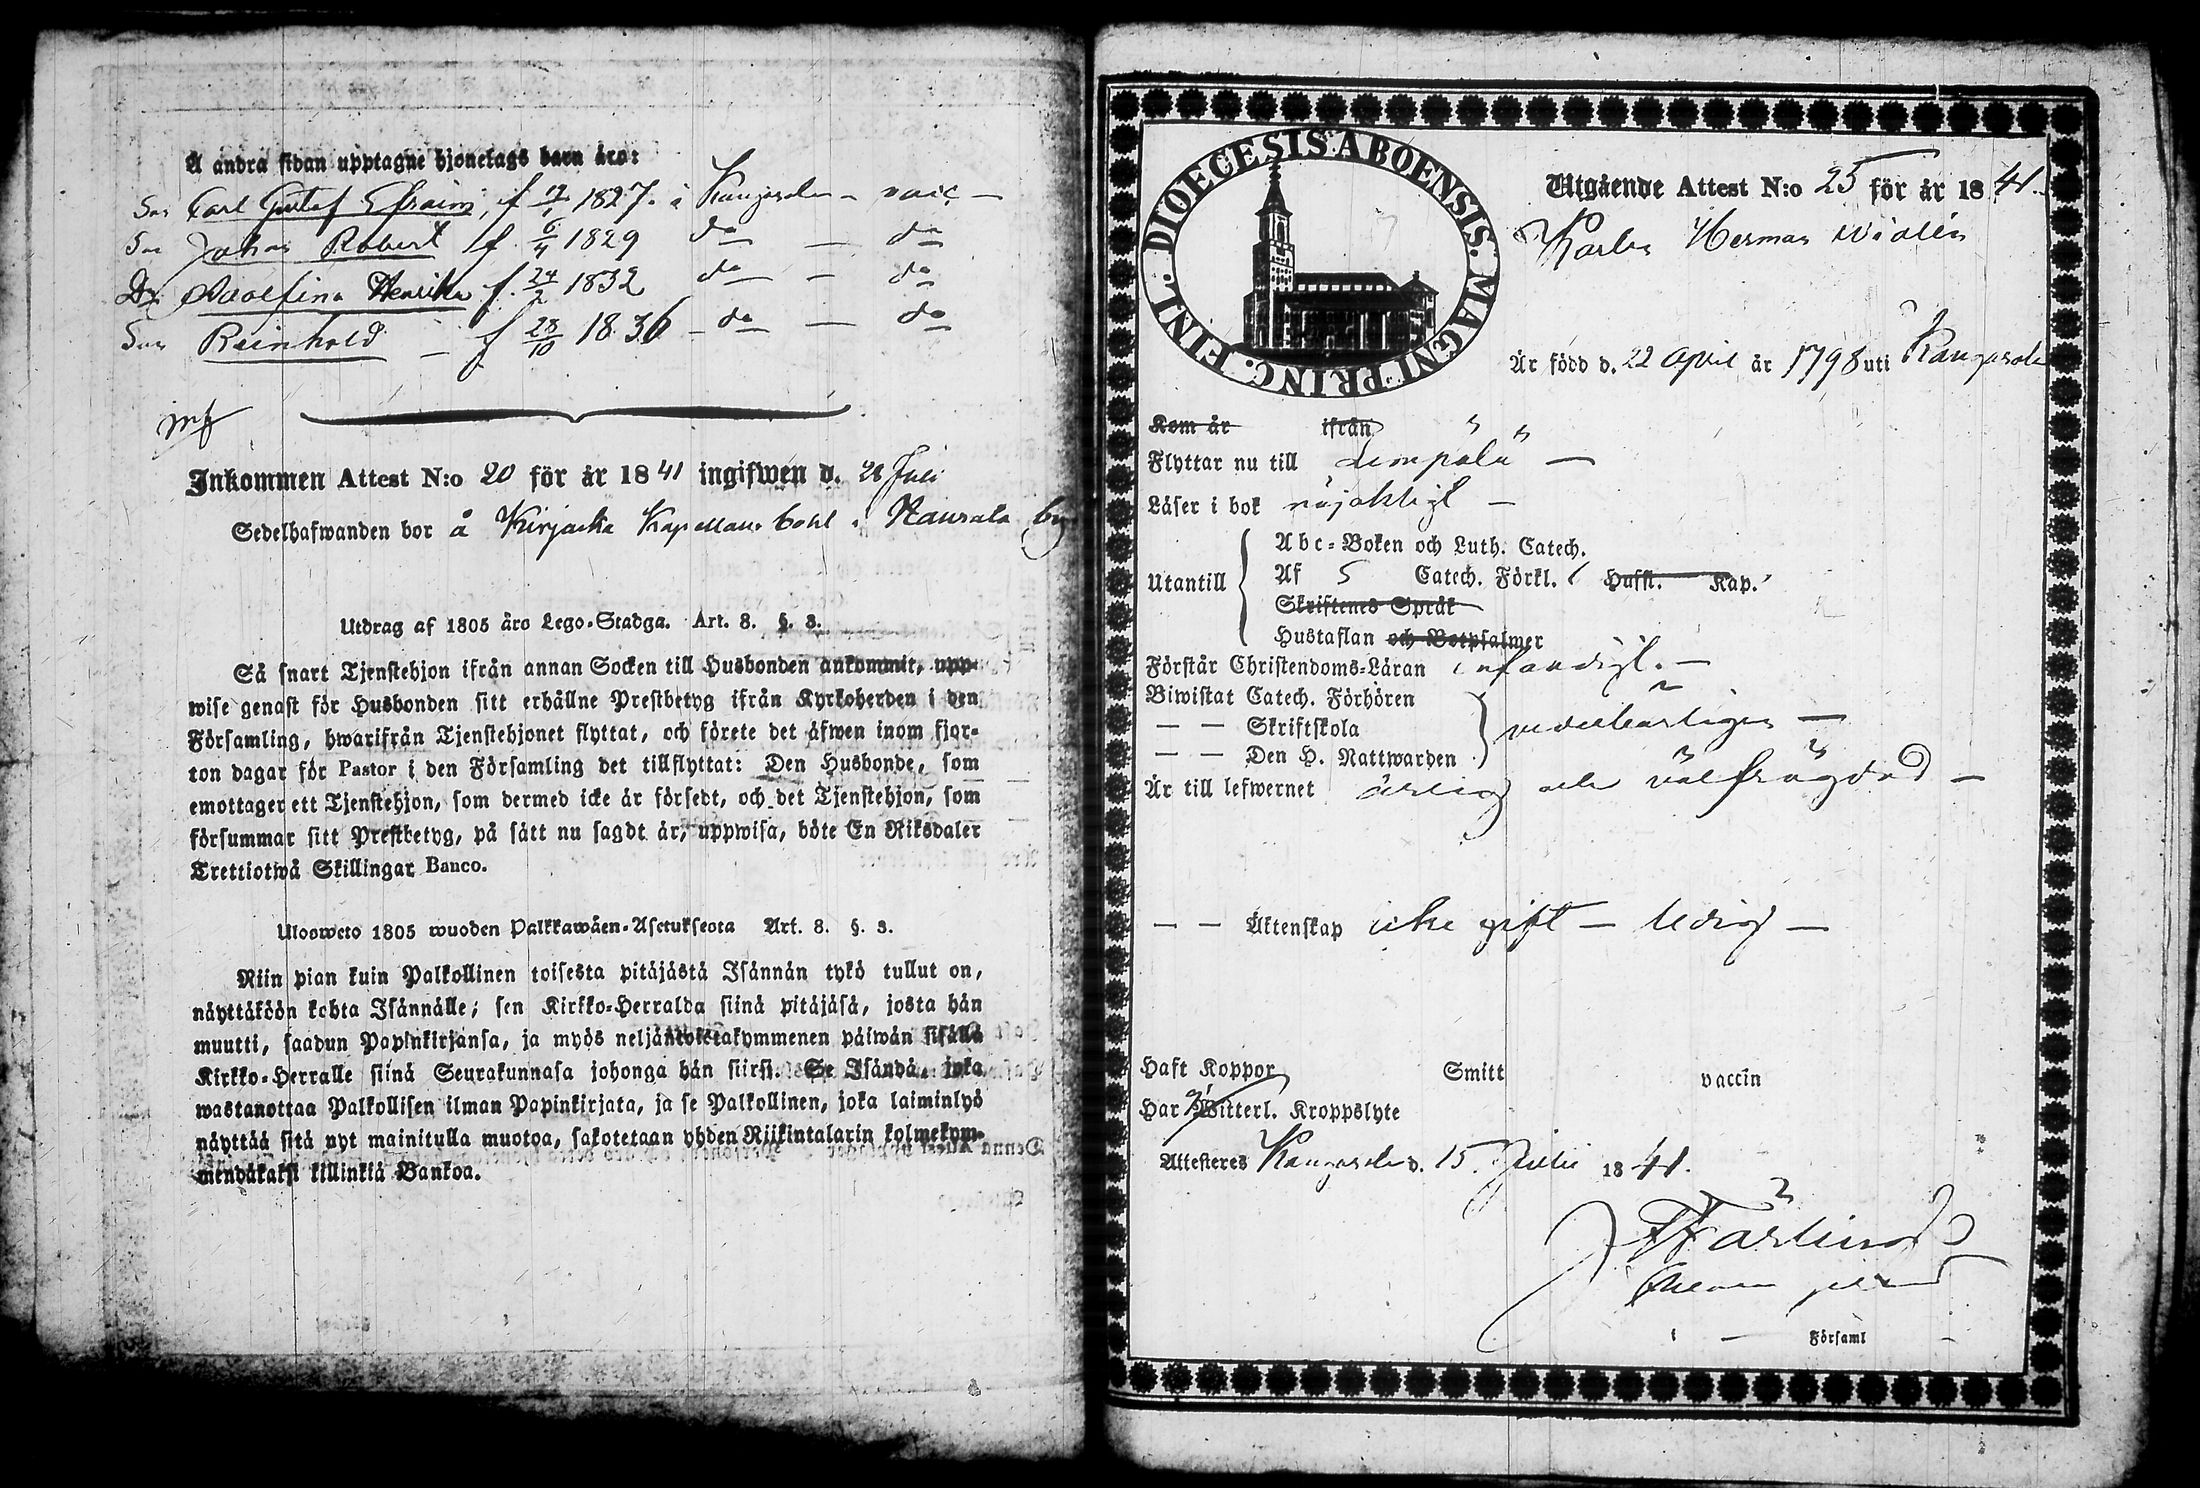 Å andra sidan upptagne hjonelags barn äro:
Son Carl Gustaf Efraim, f. 17/1 1827. i Kangasala - vacc -
Son Johan Robert f. 6/4 1829 do — do
Dr Adolfina Henrika f. 24/2 1832 do — do
Son Reinhold — f 28/10 1836 - do — do
Inkommen Attest N:o 20 för år 1841 ingifwen d. 28 Juli
Sedelhafwanden bor å Kirjaska Kapellans bohl i by
Utdrag af 1805 års Lego-Stadga. Art. 8. §. 3.
Så snart Tjenstehjon ifrån annan Socken till Husbonden ankommit, upp-
wise genast för Husbonden sitt erhållne Prestbetyg ifrån Kyrkoherden i den
Församling, hwarifrån Tjenstehjonet flyttat, och förete det äfwen inom fjor-
ton dagar för Pastor i den Församling det tillflyttat: Den Husbonde, som
emottager ett Tjenstehjon, som dermed icke är försedt, och det Tjenstehjon, som
försummar sitt Prestbetyg, på sätt nu sagdt är, uppwisa, böte En Riksdaler
Trettiotwå Skillingar Banco.
Ulosweto 1805 wuoden Palkkawäen-Asetuksesta Art. 8. §. 3.
Niin pian kuin Palkollinen toisesta pitäjästä Isännän tykö tullut on,
näyttäköön kohta Isännälle; sen Kirkko-Herralda siinä pitäjäsä, josta hän
muutti, saadun Papinkirjansa, ja myös neljäntoistakymmenen päiwän sisällä
Kirkko-Herralle siinä Seurakunnasa johonga hän siirsi. Se Isändä, joka
wastanottaa Palkollisen ilman Papinkirjata, ja se Palkollinen, joka laiminlyö
näyttää sitä nyt mainitulla muotoa, sakotetaan yhden Riikintalarin kolmekym-
mendäkaksi killinkiä Bankoa.
FINL. DIOECESIS ABOENSIS. MAGNI PRINC.
Utgående Attest N:o 25 för år 1841.
Karl Herman Widlén
Är född d. 22 April år 1798 uti Kangasala
Kom år ifrån
Flyttar nu till Lempälä —
Läser i bok nöjaktigt —
Utantill
Abc-Boken och Luth. Catech.
Af 5 Catech. Förkl. ( Hufst. Kap.
Skriftenes Språk
Hustaflan och Botpsalmer
Förstår Christendoms-Läran enfaldigt. —
Biwistat Catech. Förhören
— — Skriftskola
— — Den H. Nattwarden
vederbörligen —
Är till lefwernet ärlig och välfrägdad —
— — Äktenskap icke gift — ledig —
Haft Koppor Smitt vaccin
Har ej Witterl. Kroppslyte
Attesteres Kangasala d. 15 Julii 1841.
Församl